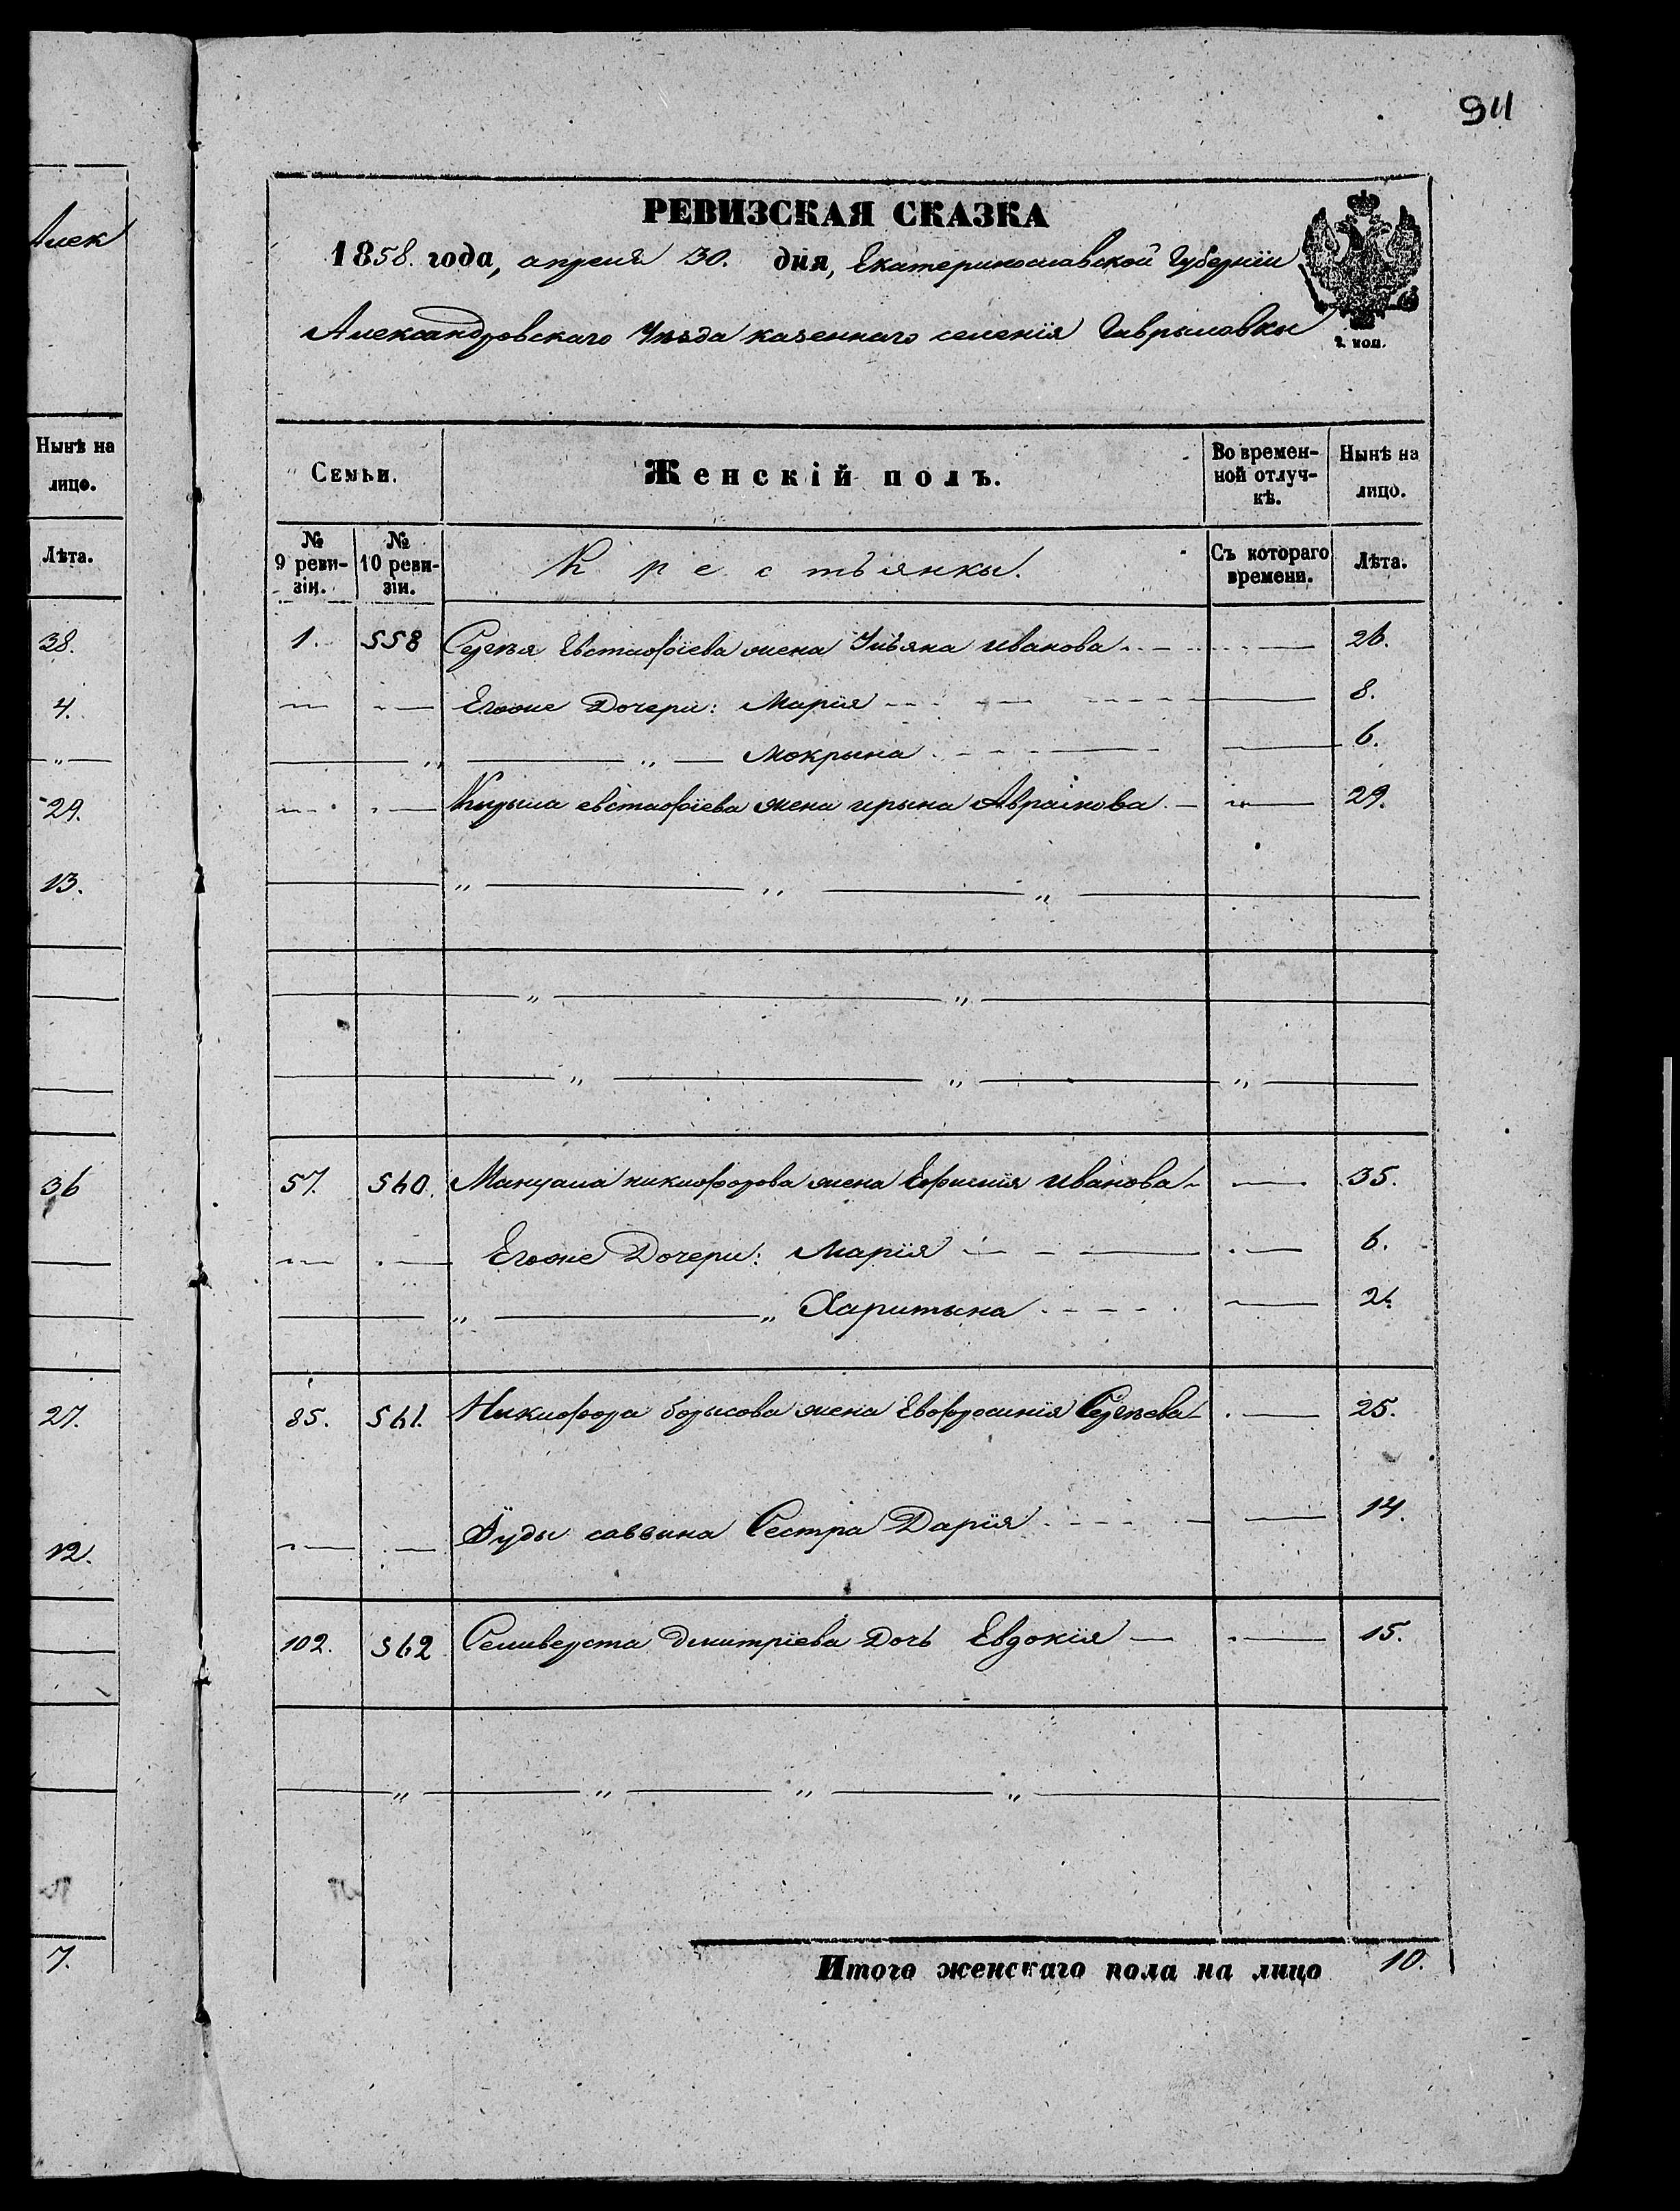 Алек
Нынѣ на
лицо.
Лѣта.
38.
4.
29.
13.
36
27.
12.
7.
94
РЕВИЗСКАЯ СКАЗКА
1858. года, апреля 30. дня, Екатеринославской Губерніи
Александровскаго Уѣзда казеннаго селенія Гаврыловки
2. коп.
Семьи.
Женскій полъ.
Во времен-
ной отлуч-
кѣ.
Нынѣ на
лицо.
№
9 реви-
зіи.
№
10 реви-
зіи.
Крестьянки.
Съ котораго
времени.
Лѣта.
1. 558 Сергѣя Евстафіева жена Ульяна иванова 26.
Егоже Дочери: Марія 8.
Мокрына 6.
Кирыла евстафіева жена ирына Авраімова 29.
57. 560. Мануила никифорова жена Ефимія иванова 35.
Егоже Дочери: Марія 6.
Харитына 2.
85. 561. Никифора борысова жена Евфросинія Сергѣева 25.
Іуды саввина Сестра Дарія 14.
102. 562 Селиверста дмитріева Дочь Евдокія 15.
Итого женскаго пола на лицо 10.